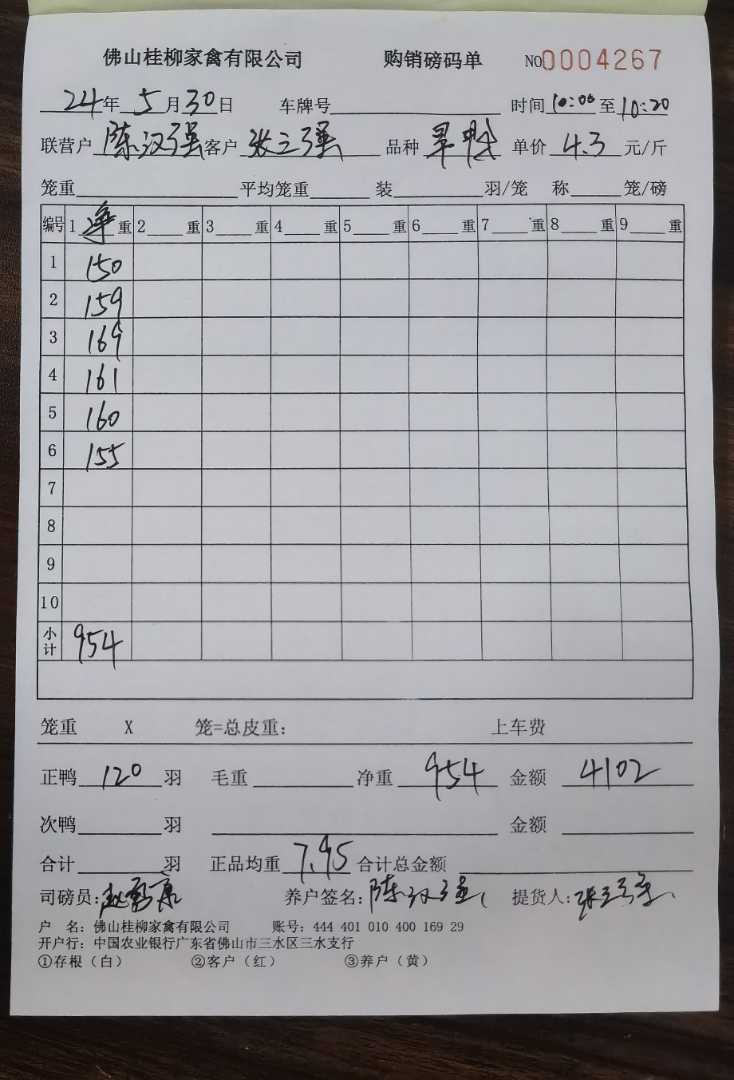 佛山桂柳家禽有限公司 购销磅码单 NO0004267
24年5月30日 车牌号 时间10:00至10:20
联营户 陈汉强 客户 张立强 品种 单价 4.3 元/斤
笼重 平均笼重 装 羽/笼 称 笼/磅
编号 1 净 重 2 重 3 重 4 重 5 重 6 重 7 重 8 重 9 重
1 150
2 159
3 169
4 161
5 160
6 155
7
8
9
10
小计 954
笼重 X 笼=总皮重: 上车费
正鸭 120 羽 毛重 净重 954 金额 4102
次鸭 羽 金额
合计 羽 正品均重 7.95 合计总金额
司磅员: 养户签名: 陈汉强 提货人: 张立强
户 名: 佛山桂柳家禽有限公司 账号: 444 401 010 400 169 29
开户行: 中国农业银行广东省佛山市三水区三水支行
①存根(白) ②客户(红) ③养户(黄)